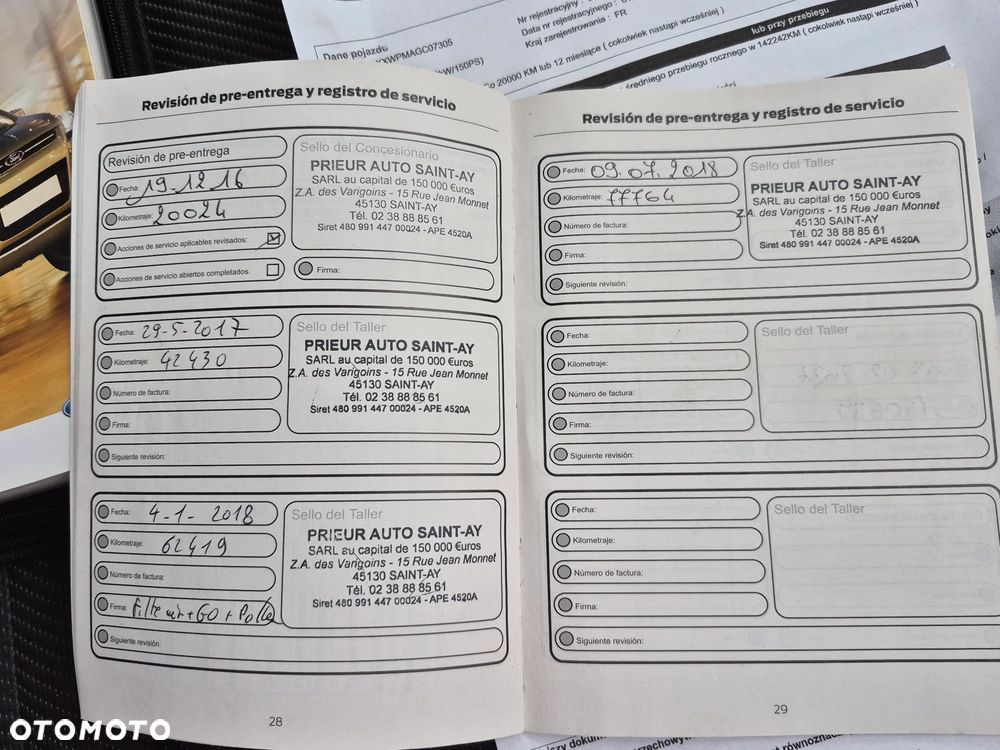 Nr rejestracyjny :
Data nr rejestracyjnego :
Kraj zarejestrowania : FR
Dane pojazdu
XWPMAGC07305
W/150PS)
Co 20000 KM lub 12 miesiące ( cokolwiek nastąpi wcześniej )
lub przy przebiegu
średniego przebiegu rocznego w 142242KM ( cokolwiek nastąpi wcześniej )
Revisión de pre-entrega y registro de servicio
Revisión de pre-entrega
Fecha: 19-12-16
Kilometraje: 20024
Acciones de servicio aplicables revisados:
Acciones de servicio abiertos completados:
Sello del Concesionario
PRIEUR AUTO SAINT-AY
SARL au capital de 150 000 €uros
Z.A. des Varigoins - 15 Rue Jean Monnet
45130 SAINT-AY
Tél. 02 38 88 85 61
Siret 480 991 447 00024 - APE 4520A
Firma:
Fecha: 29-5-2017
Kilometraje: 42430
Número de factura:
Firma:
Siguiente revisión:
Sello del Taller
PRIEUR AUTO SAINT-AY
SARL au capital de 150 000 €uros
Z.A. des Varigoins - 15 Rue Jean Monnet
45130 SAINT-AY
Tél. 02 38 88 85 61
Siret 480 991 447 00024 - APE 4520A
Fecha: 4-1-2018
Kilometraje: 62419
Número de factura:
Firma: Filtre air + GO + Pollen
Siguiente revisión:
Sello del Taller
PRIEUR AUTO SAINT-AY
SARL au capital de 150 000 €uros
Z.A. des Varigoins - 15 Rue Jean Monnet
45130 SAINT-AY
Tél. 02 38 88 85 61
Siret 480 991 447 00024 - APE 4520A
28
Revisión de pre-entrega y registro de servicio
Fecha: 09.07.2018
Kilometraje: 77764
Número de factura:
Firma:
Siguiente revisión:
Sello del Taller
PRIEUR AUTO SAINT-AY
SARL au capital de 150 000 €uros
Z.A. des Varigoins - 15 Rue Jean Monnet
45130 SAINT-AY
Tél. 02 38 88 85 61
Siret 480 991 447 00024 - APE 4520A
Fecha:
Kilometraje:
Número de factura:
Firma:
Siguiente revisión:
Sello del Taller
Fecha:
Kilometraje:
Número de factura:
Firma:
Siguiente revisión:
Sello del Taller
29
OTOMOTO